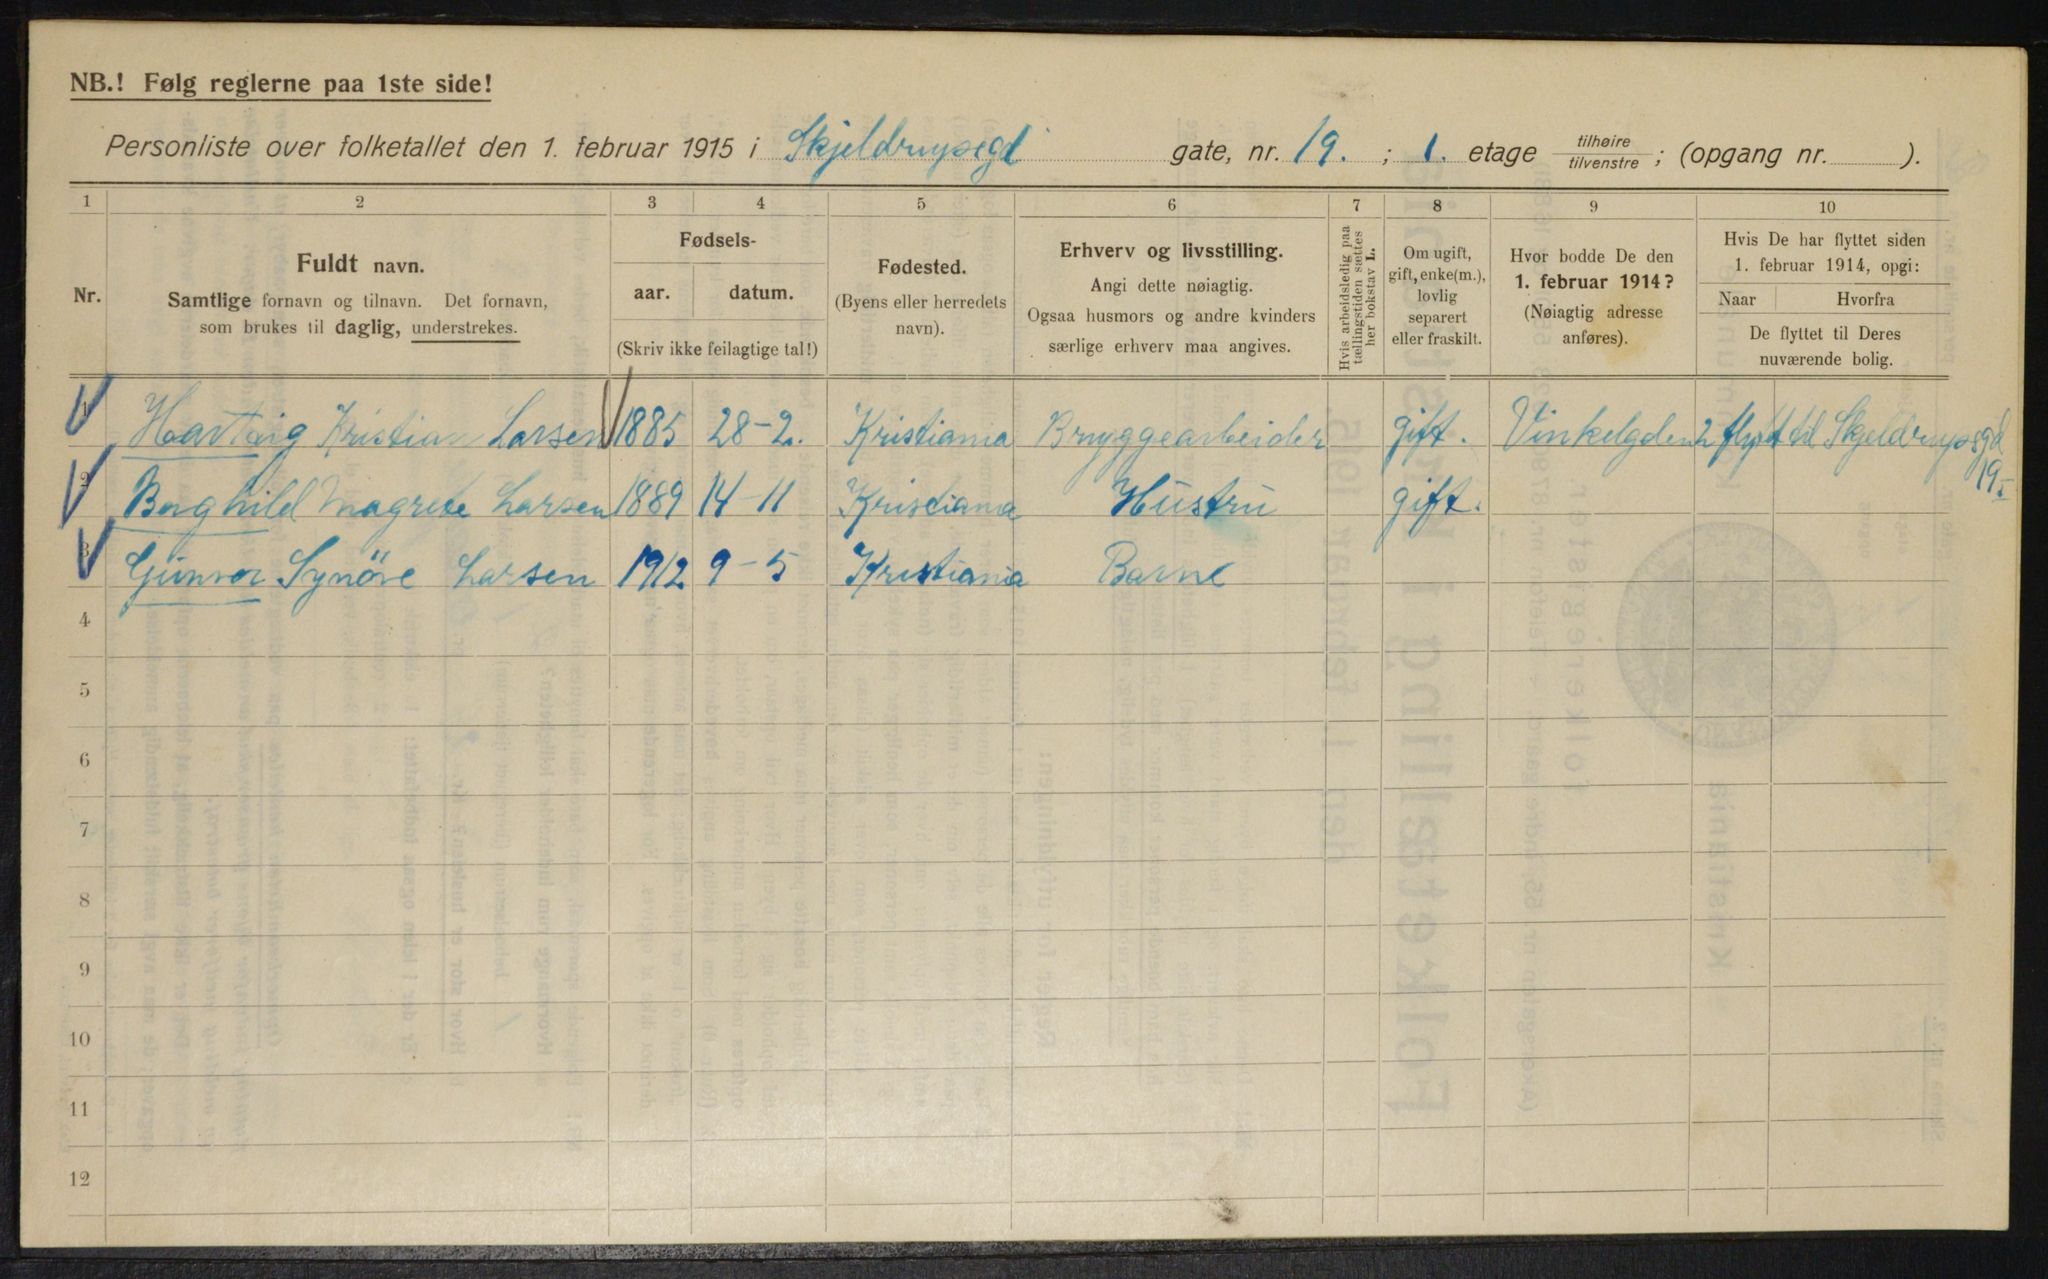 NB.! Følg reglerne paa 1ste side!
Personliste over folketallet den 1. februar 1915 i Skjeldrupsgd gate, nr. 19. ; 1. etage tilhøire/tilvenstre ; (opgang nr. ).
1 2 3 4 5 6 7 8 9 10
Nr.
Fuldt navn.
Samtlige fornavn og tilnavn. Det fornavn,
som brukes til daglig, understrekes.
Fødsels-
aar. datum.
(Skriv ikke feilagtige tal!)
Fødested.
(Byens eller herredets
navn).
Erhverv og livsstilling.
Angi dette nøiagtig.
Ogsaa husmors og andre kvinders
særlige erhverv maa angives.
Hvis arbeidsledig paa
tællingstiden sættes
her bokstav L.
Om ugift,
gift, enke(m.),
lovlig
separert
eller fraskilt.
Hvor bodde De den
1. februar 1914?
(Nøiagtig adresse
anføres).
Hvis De har flyttet siden
1. februar 1914, opgi:
Naar Hvorfra
De flyttet til Deres
nuværende bolig.
1 Hartvig Kristian Larsen 1885 28-2. Kristiania Bryggearbeider gift. Vinkelgden 2 flyt til Skjeldrupsgd
19.
2 Borghild Magrete Larsen 1889 14-11 Kristiania Hustru gift.
3 Gunvor Synöve Larsen 1912 9-5 Kristiania Barne
4
5
6
7
8
9
10
11
12